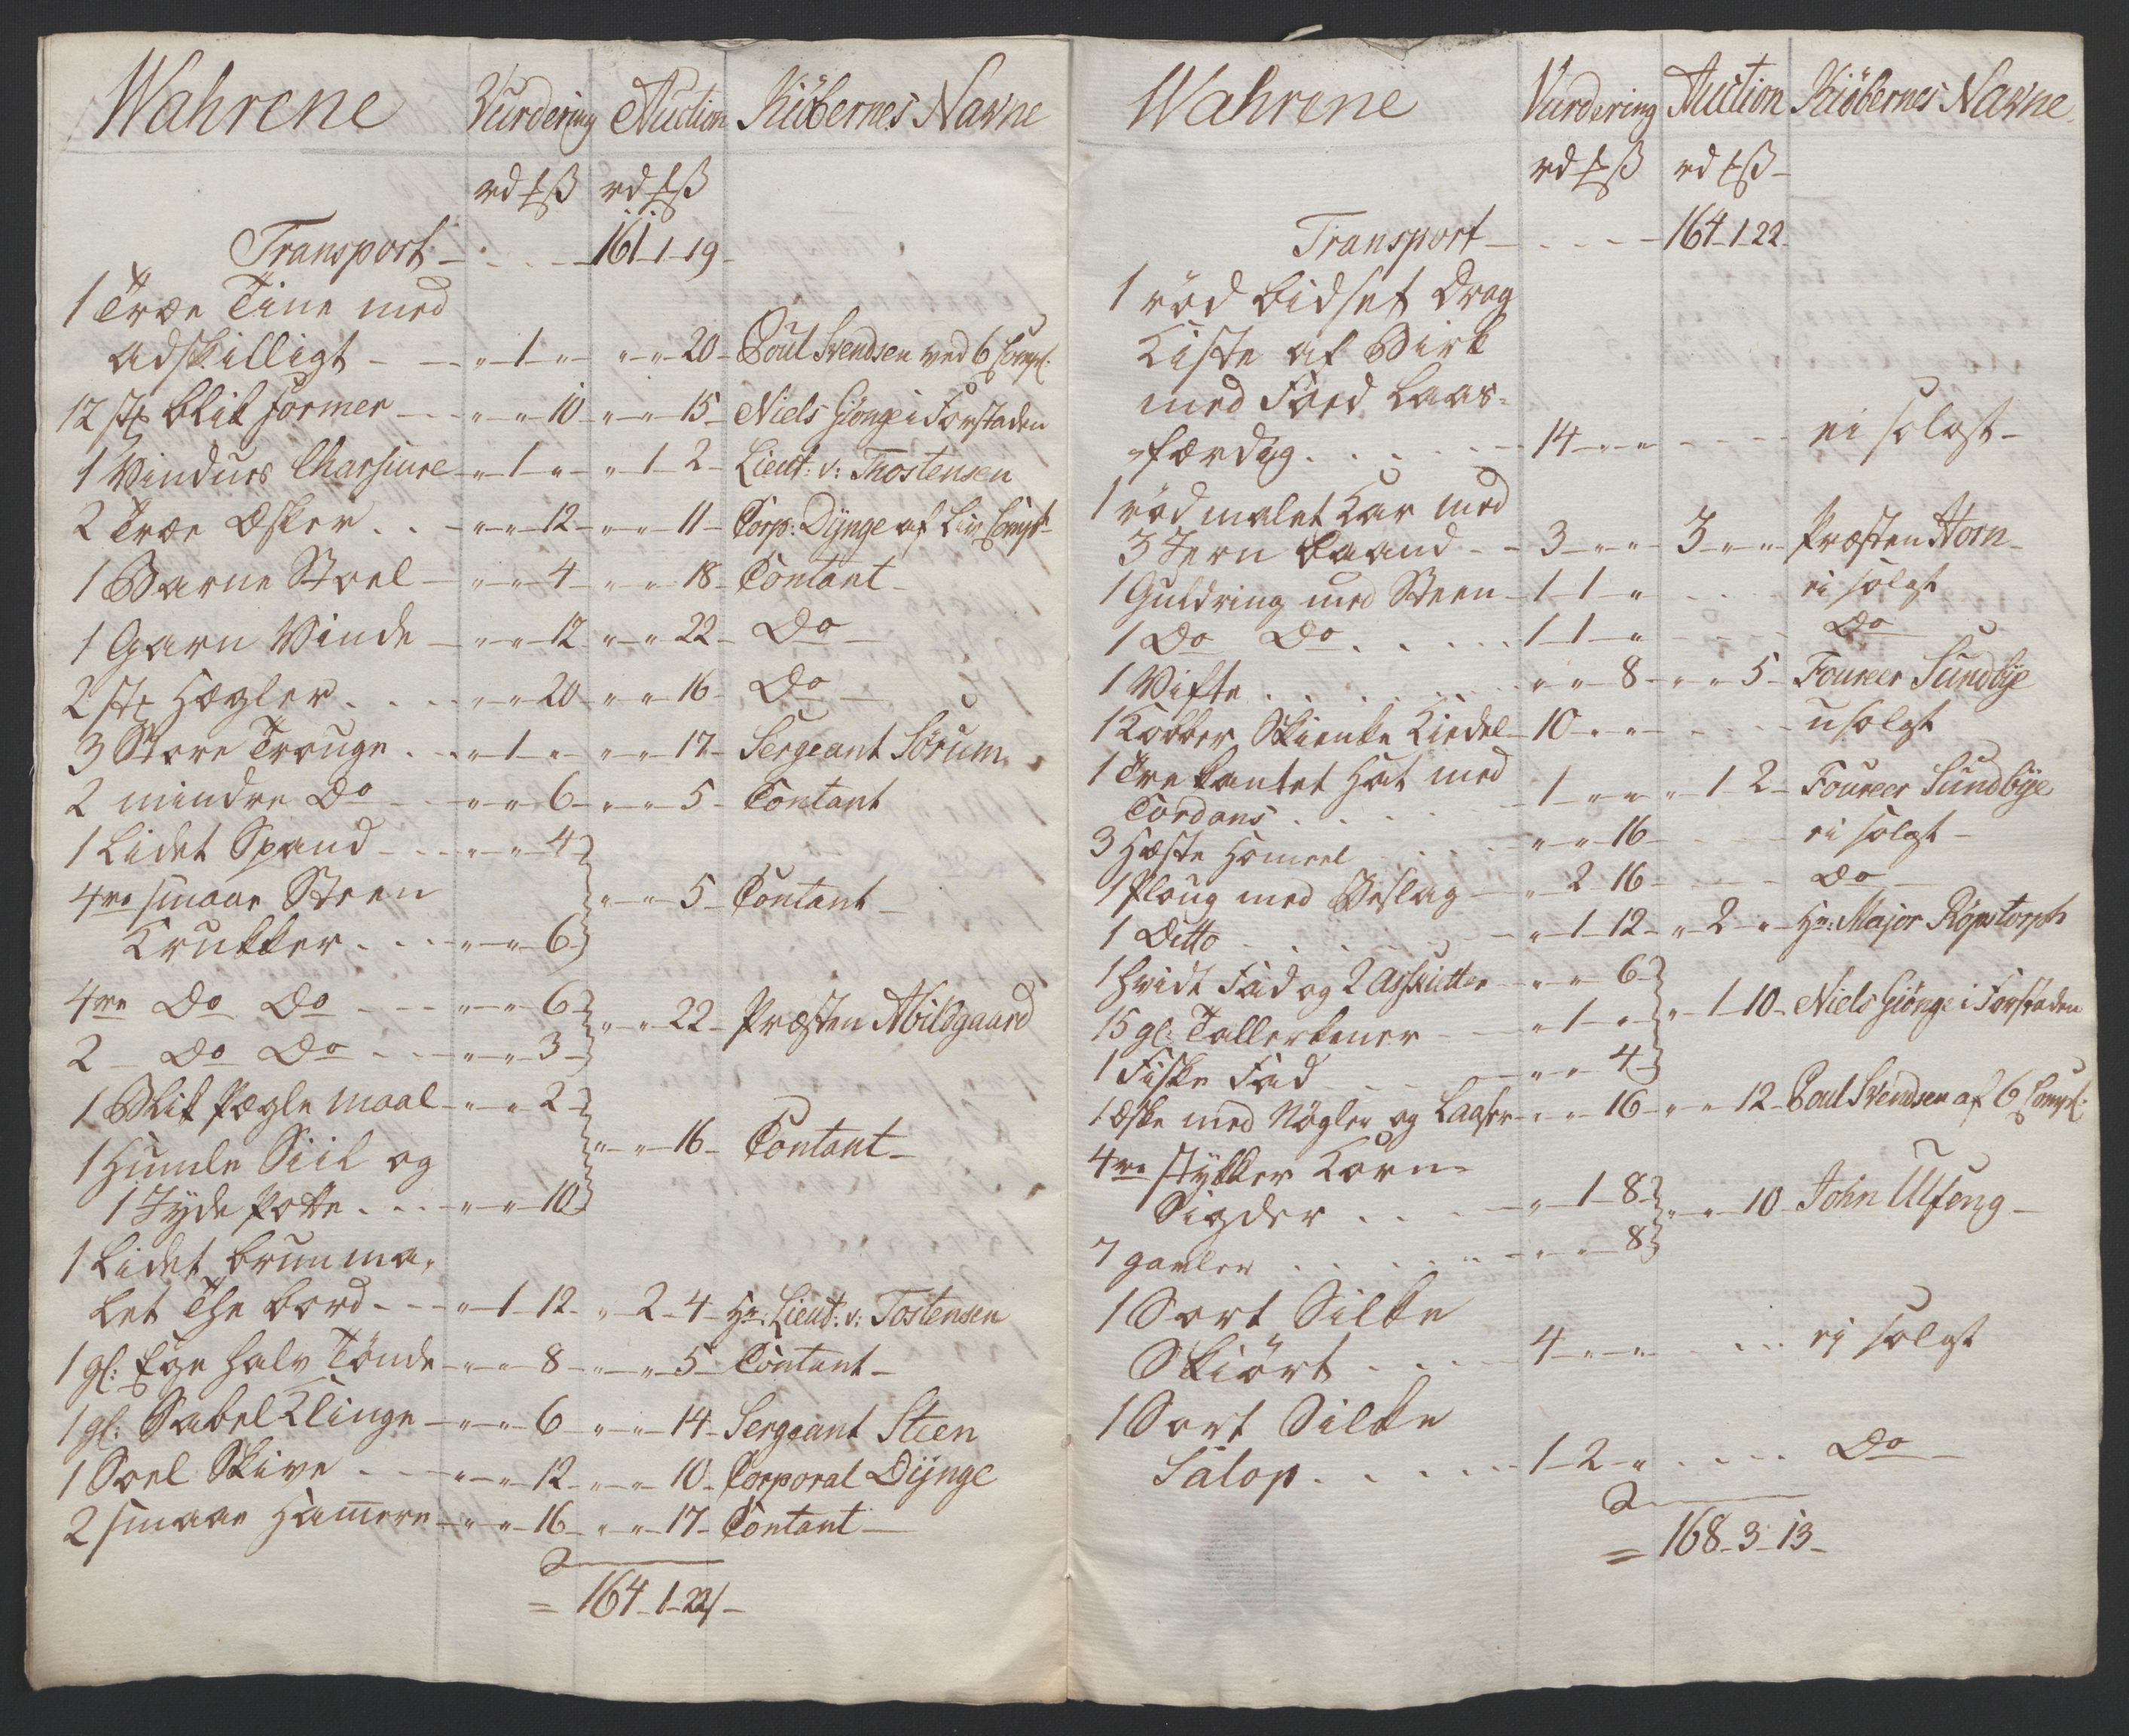 Wahrene Vurdering Auction Kiöbernes Navne
rd ß rd ß
Transport - - - - 161-1-19
1 Træ Tine med
adskilligt - - „-1-„ „-„-20- Poul Svendsen ved 6 Comp:
12 st blik former - - „-„-10- „-„-15- Niels Giönge i Forstaden
1 Vindues Charfiure - „-1-„ - „-1-2- Lieut: v: Thostensen
2 Træ Æsker . . - „-„-12- „-„-11- Corp: Dÿnge af Liv Comp:
1 Barne Stoel - „-„-4- „-„-18- Contant-
1 Garn Vinde - „-„-12 „-„-22- Do-
2 st Hegler . . . - „-„-20- „-„-16- Do-
3 Store Trouge . - „-1-„ - „-„-17- Sergeant Sörum
2 mindre Do - - „-„-6- „-„-5- Contant
1 Lidet Spand - - „-„-4-
4re smaae Steen „-„-5- Contant-
Krukker . . . - „-„-6
4re Do Do - - - „-„-6-
„-„-22- Præsten Abildgaard
2 - Do Do - - - „-„-3-
1 Blik Pægle maal - „-„-2-
1 Humle Siil og „-„-16- Contant-
1 Jyde Potte . . . - „-„-10
1 Lidet brunma-
let The bord - - - „-1-12- „-2-4- Hr: Lieut: v: Tostensen
1 gl: Ege halv Tönde - „-„-8- „-„-5- Contant-
1 gl: Sabel Klinge - „-„-6- „-„-14- Sergeant Steen
1 Soel Skive - - - „-„-12- „-„-10- Corporal Dÿnge
2 smaae Hamere - „-„-16- „-„-17- Contant-
= 164-1-22/-
Wahrene Vurdering Auction Kiöbernes Navne
rd ß rd ß-
Transport - - - - 164-1-22-
1 röd bidset Drag
Kiste af Birk
med Foed Laas-
færdig . . . . . - 14-„-„ - - - - ei solgt-
1 röd malet Kar med
3 Jern baand - - 3-„-„- 3-„-„- Præsten Horn-
1 Guldring med Steen - 1-1-„ - - - ei solgt
1 Do Do . . . . . 1-1-„ - - - - Do
1 Vifte . . . . . . „-„-8- „-„-5- Foureer Sundbÿe
1 Kobber Skienke Kiedel - 10-„-„ - - - - usolgt
1 Tre kantet Hat med
Cordons . . . . - 1-„-„ - „-1-2- Foureer Sundbÿe
3 Heste - - . . „-„-16 - - - ei solgt-
1 Ploug med Beslag - „-2-16- - - - Do
1 Ditto . . . . . . - „-1-12- „-2-„- Hr: Major Röpstorph
1 hvidt Fad og 2 Assietter - „-„-6
15 gl: Tallerkener - - „-1-„ - „-1-10- Niels Giönge i Forstaden
1 Fiske Fad - - - - „-„-4
1 Æske med Nögler og Laaser - „-„-16- „-„-12- Poul Svendsen af 6 Comp:
4re stÿkker Korn-
Sigder . . . - „-1-8-
„-„-10- John Ulfeng-
7 gavler . . . . . - „-„-8
1 Sort Silke
Skiört . . . - 4-„-„ - . . . ej solgt
1 Sort Silke
Salop . . . . . 1-2-„ . . . . Do-
= 168-3-13-